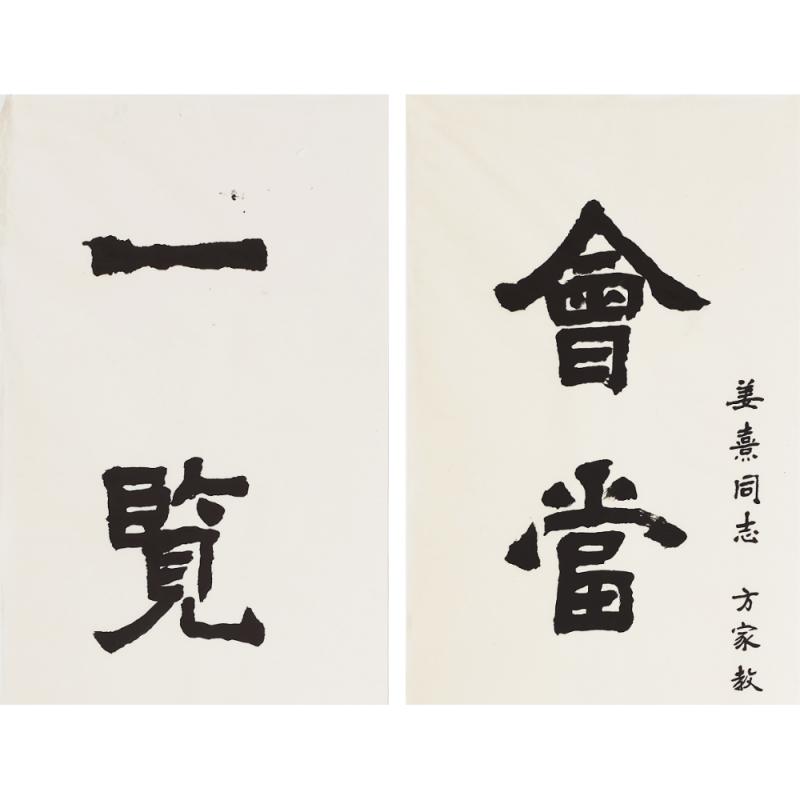 姜熹同志 方家教
會當
一覧